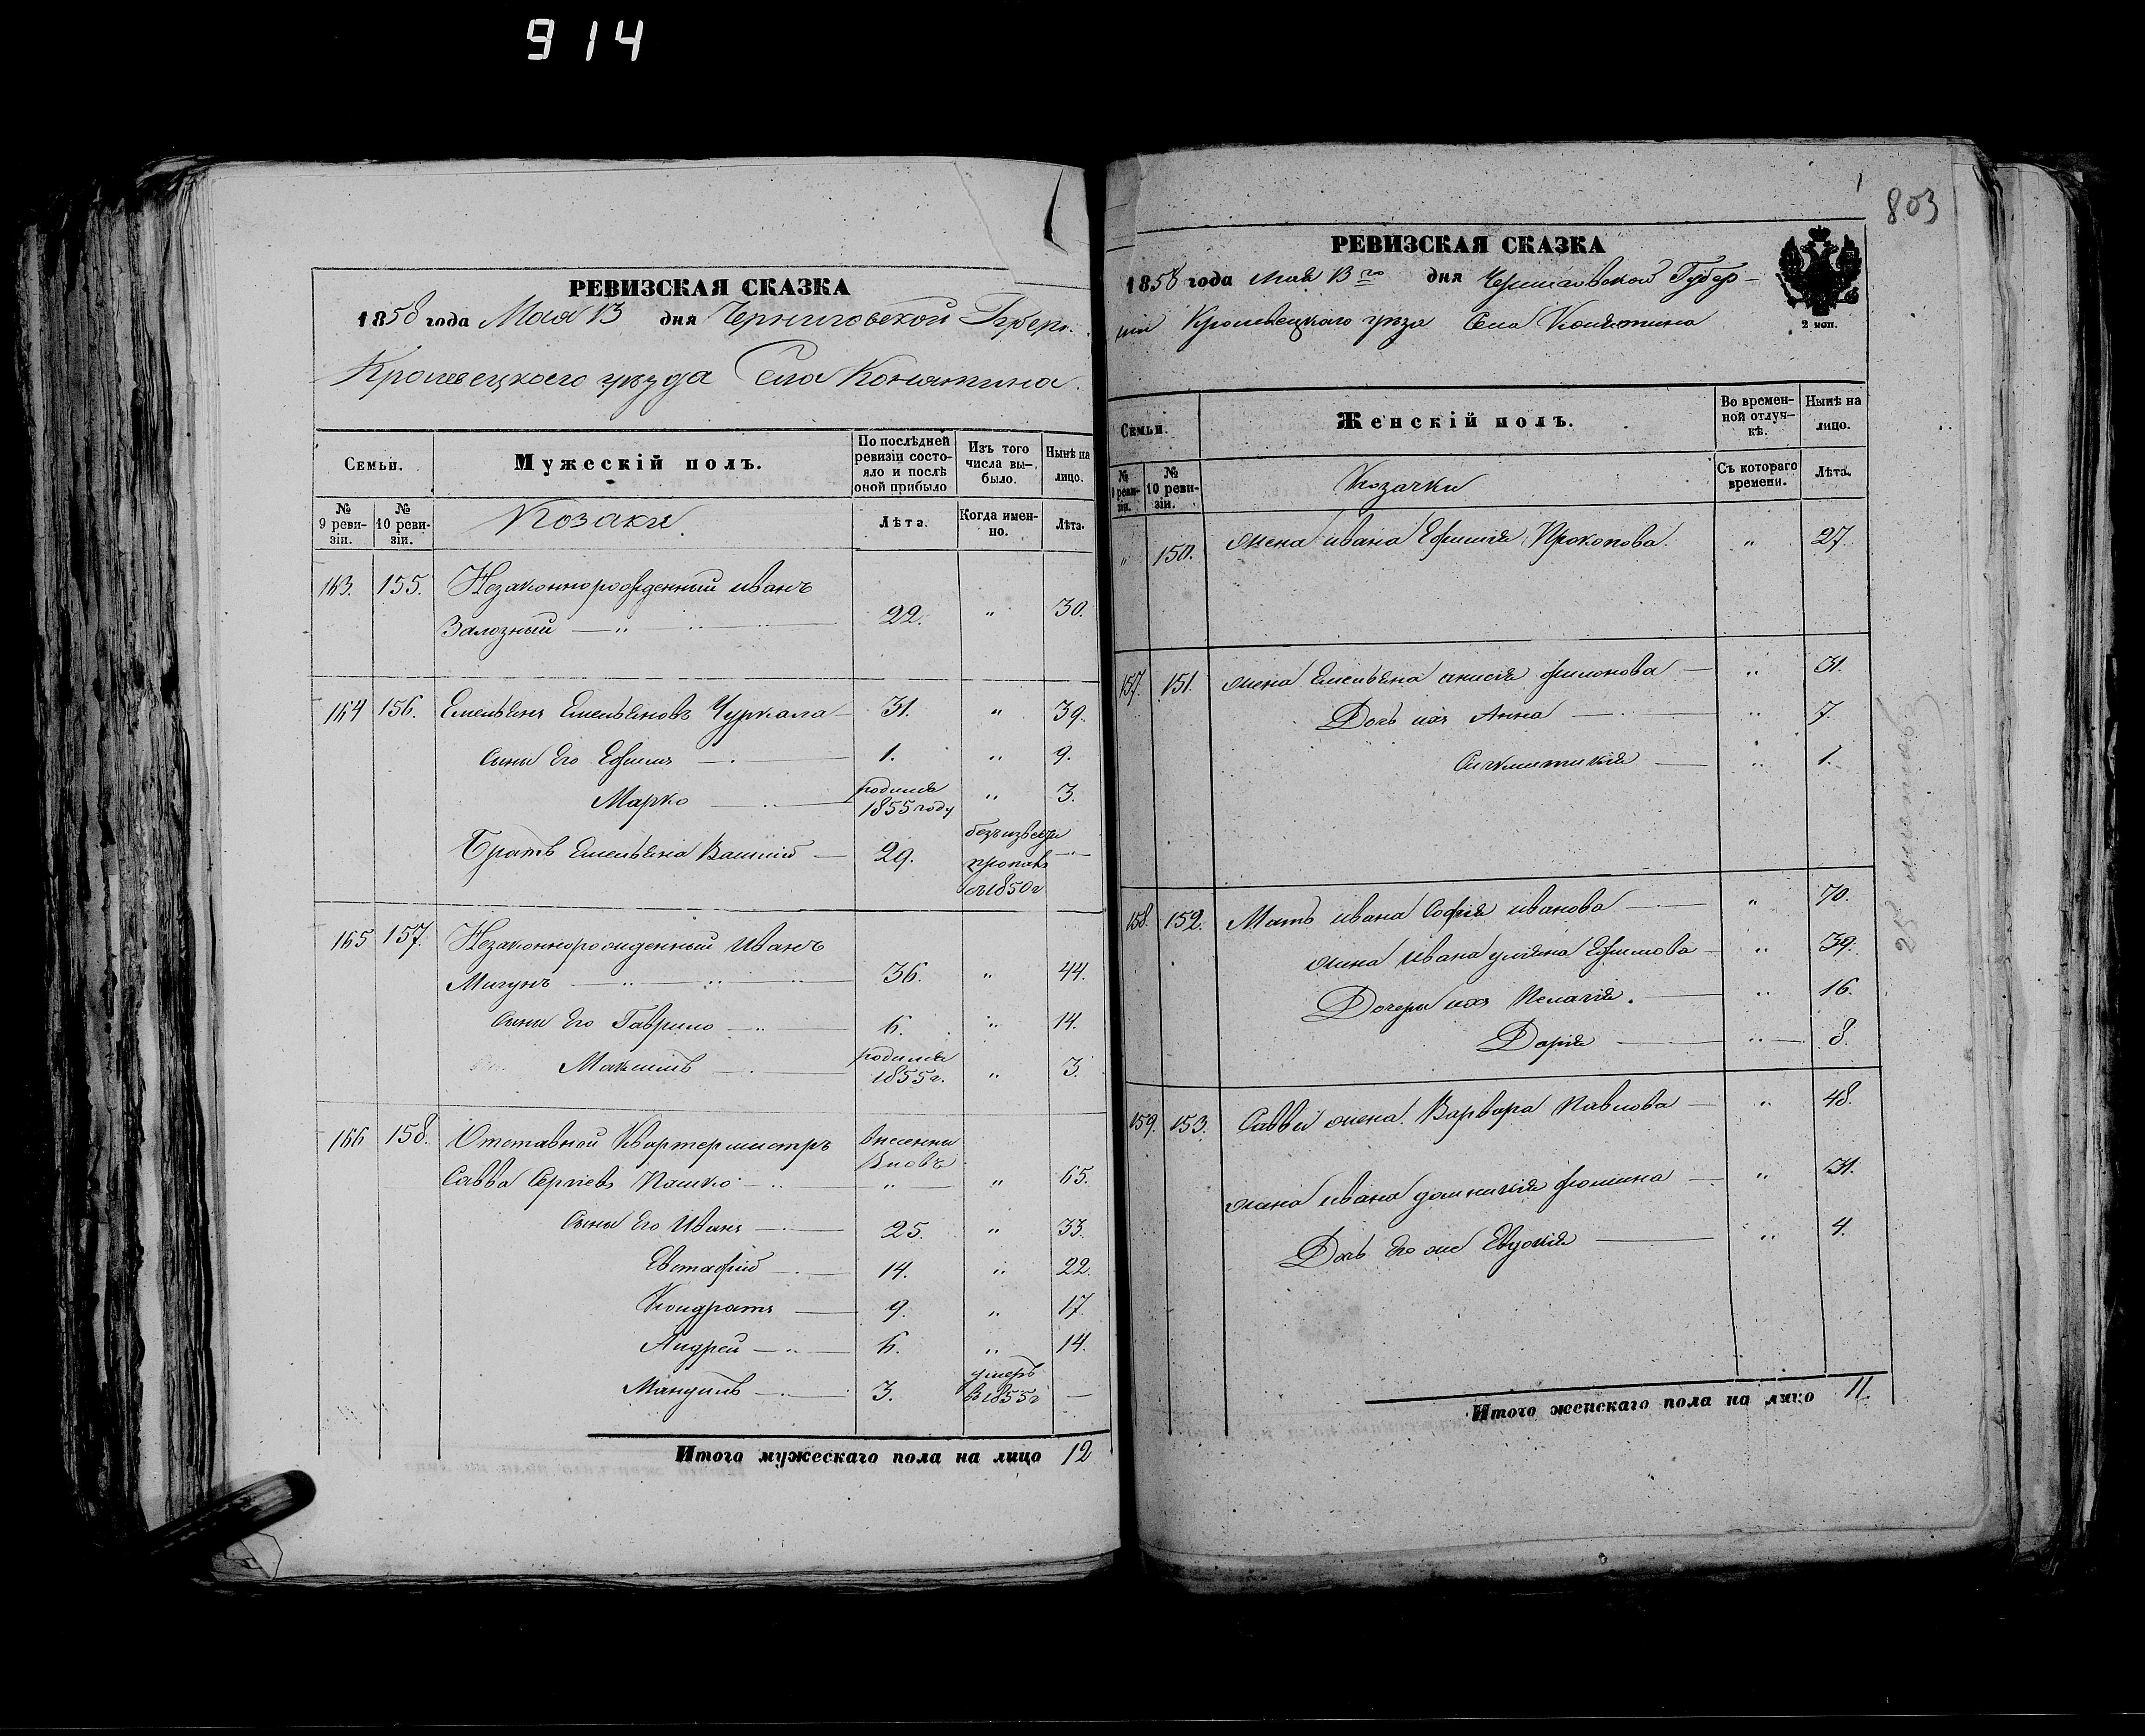 914
РЕВИЗСКАЯ СКАЗКА
1858 года Мая 13 дня Черниговской Губерн.
Кролевецкого уѣзда Села Конятина
Семьи.
Мужескій полъ.
По послѣдней ревизіи состояло и послѣ оной прибыло
Изъ того числа выбыло.
Нынѣ на лицо.
№ 9 ревизіи.
№ 10 ревизіи.
Козаки
Лѣта.
Когда именно.
Лѣта.
163. 155. Незаконнорожденный иванъ
Залозный — „ 22. „ 30.
164 156. Емельянъ Емельяновъ Чуркала 31. „ 39.
Сыны Его Ефимъ — 1. „ 9.
Марко — родился 1855 году „ 3.
Братъ Емельяна Василій — 29. безъизвестно пропавъ съ 1850 г —
165 157. Незаконнорожденный Иванъ
Мигунъ — „ 36. „ 44.
Сыны Его Гаврило — 6. „ 14.
Максимъ — родился 1855 г. „ 3.
166 158. Отставной Квартермистръ внесенни
Савва Сергіевъ Пашко — вновь „ „ 65.
Сыны Его Иванъ — 25. „ 33.
Евстафій — 14. „ 22.
Кондратъ — 9. „ 17.
Андрей — 6. „ 14.
Мануилъ — 3. умеръ въ 1855 г —
Итого мужескаго пола на лицо 12
803
РЕВИЗСКАЯ СКАЗКА
1858 года Мая 13го дня Черниговской Губер-
ніи Кролевецкаго уѣзда Села Конятина
2 коп.
Семьи.
Женскій полъ.
Во временной отлучкѣ.
Нынѣ на лицо.
№ 9 ревизіи.
№ 10 ревизіи.
Козачки
Съ котораго времени.
Лѣта.
„ 150. Жена ивана Ефимія Прокопова. „ 27.
157. 151. Жена Емельяна анисія филонова — „ 31.
Дочь ихъ Анна — „ 7.
Сиклитикія — „ 1.
158. 152. Мать ивана Софія иванова — „ 70.
жена ивана уліяна Ефимова — „ 39.
Дочери ихъ Пелагія. — „ 16.
Дарія — „ 8.
159. 153. Саввы жена Варвара Павлова — „ 48.
жена ивана домникія фомина — „ 31.
Дочь Его же Евдокія — „ 4.
Итого женскаго пола на лицо 11.